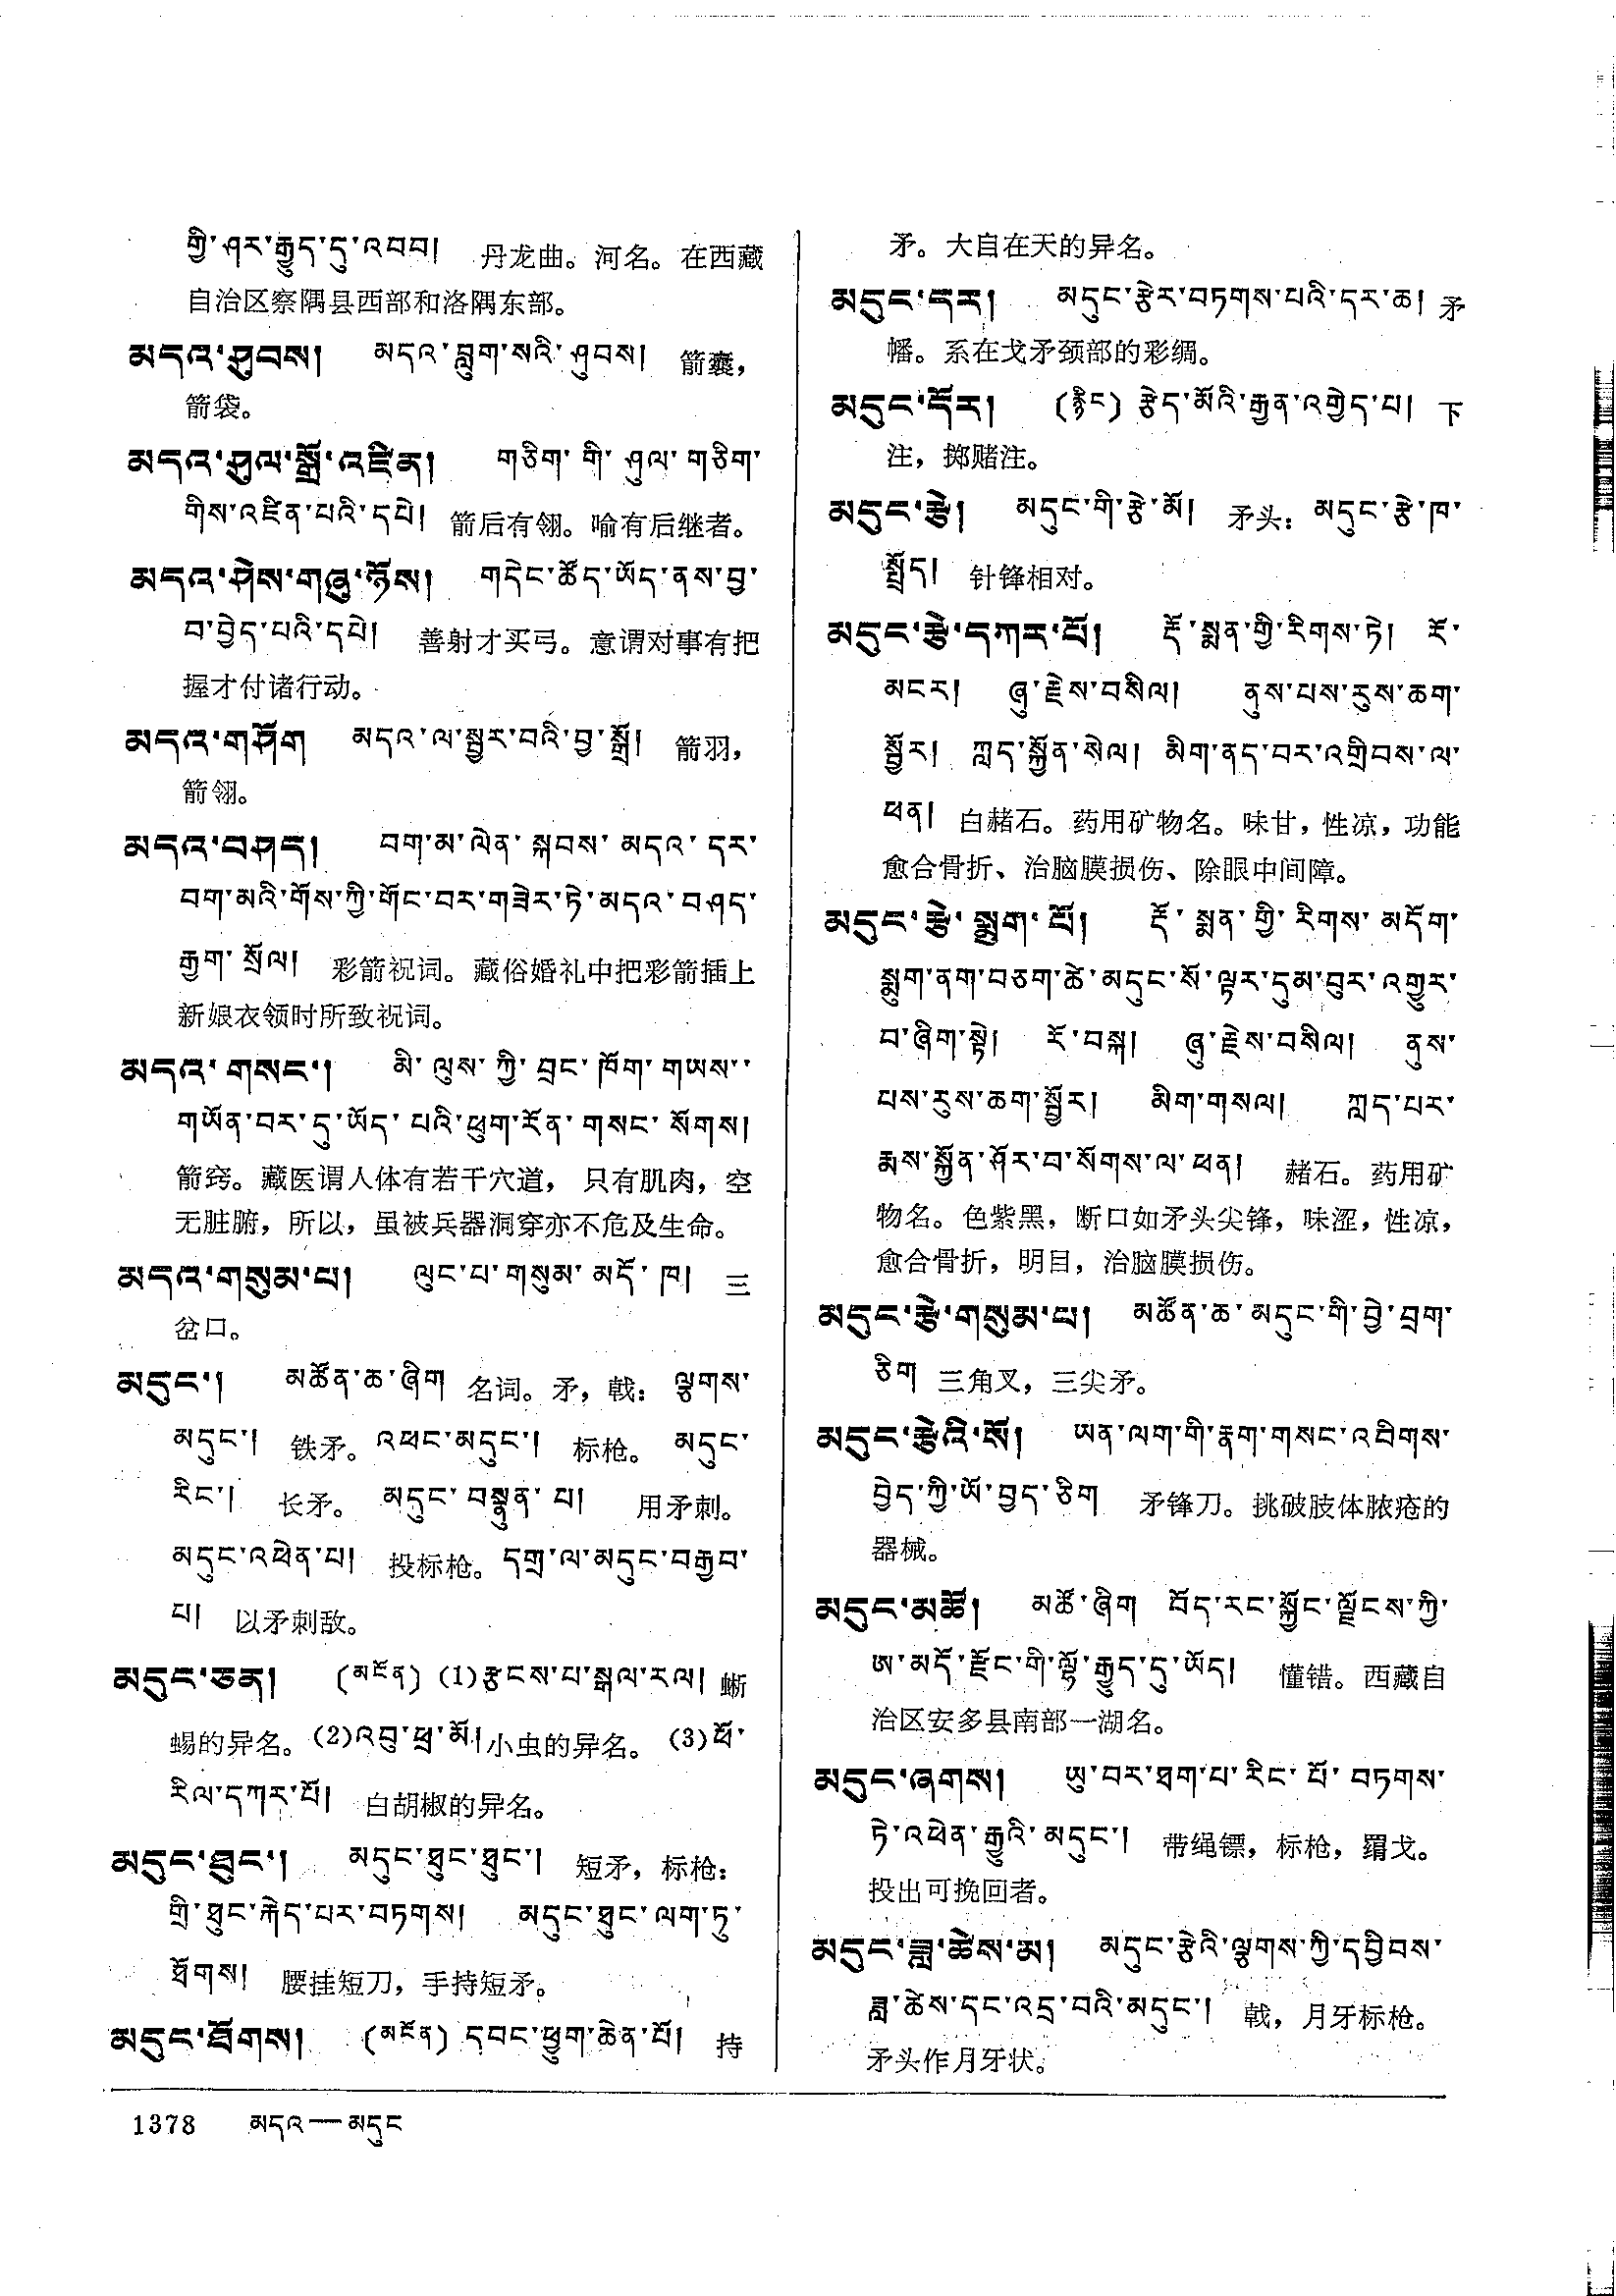 གྱི་ཤར་རྒྱུད་དུ་འབབ། 丹龙曲。河名。在西藏
自治区察隅县西部和洛隅东部。
མདའ་ཤུབས། མདའ་བླུག་སའི་ཤུབས། 箭囊，
箭袋。
མདའ་ཤུལ་སྒྲོ་འཛིན། གཅིག་གི་ཤུལ་གཅིག་
གིས་འཛིན་པའི་དཔེ། 箭后有翎。喻有后继者。
མདའ་ཤེས་གཞུ་ཉོས། གདེང་ཚོད་ཡོད་ནས་བྱ་
བ་བྱེད་པའི་དཔེ། 善射才买弓。意谓对事有把
握才付诸行动。
མདའ་གཤོག མདའ་ལ་སྦྱར་བའི་བྱ་སྒྲོ། 箭羽，
箭翎。
མདའ་བཤད། བག་མ་ལེན་སྐབས་མདའ་དར་
བག་མའི་གོས་ཀྱི་གོང་བར་གཟེར་ཏེ་མདའ་བཤད་
རྒྱག་སྲོལ། 彩箭祝词。藏俗婚礼中把彩箭插上
新娘衣领时所致祝词。
མདའ་གསང་། མི་ལུས་ཀྱི་བྲང་ཁོག་གཡས་
གཡོན་བར་དུ་ཡོད་པའི་ཕུག་རོན་གསང་སོགས།
箭窍。藏医谓人体有若干穴道，只有肌肉，空
无脏腑，所以，虽被兵器洞穿亦不危及生命。
མདའ་གསུམ་པ། ལུང་པ་གསུམ་མདོ་ཁ། 三
岔口。
མདུང་། མཚོན་ཆ་ཞིག 名词。矛，戟： ལྕགས་
མདུང་། 铁矛。འཕང་མདུང་། 标枪。 མདུང་
རིང་། 长矛。 མདུང་བསྣུན་པ། 用矛刺。
མདུང་འཕེན་པ། 投标枪。དགྲ་ལ་མདུང་བརྒྱབ་
པ། 以矛刺敌。
མདུང་ཅན། (མངོན) (1)རྩངས་པ་སྒལ་རལ། 蜥
蜴的异名。(2)འབུ་ཕྲ་མོ།小虫的异名。(3)ཕོ་
རིལ་དཀར་པོ། 白胡椒的异名。
མདུང་ཐུང་། མདུང་ཐུང་ཐུང་། 短矛，标枪：
གྲི་ཐུང་རྐེད་པར་བཏགས། མདུང་ཐུང་ལག་ཏུ་
ཐོགས། 腰挂短刀，手持短矛。
མདུང་ཐོགས། (མངོན) དབང་ཕྱུག་ཆེན་པོ། 持
矛。大自在天的异名。
མདུང་དར། མདུང་རྩེར་བཏགས་པའི་དར་ཆ། 矛
幡。系在戈矛颈部的彩绸。
མདུང་དོར། (རྙིང) རྩེད་མོའི་རྒྱན་འགྱེད་པ། 下
注，掷赌注。
མདུང་རྩེ། མདུང་གི་རྩེ་མོ། 矛头：མདུང་རྩེ་ཁ་
སྤྲོད། 针锋相对。
མདུང་རྩེ་དཀར་པོ། རྡོ་སྨན་གྱི་རིགས་ཏེ། རོ་
མངར། ཞུ་རྗེས་བསིལ། ནུས་པས་རུས་ཆག་
སྦྱོར། ཀླད་སྐྱོན་སེལ། མིག་ནད་བར་འགྲིབས་ལ་
ཕན། 白赭石。药用矿物名。味甘，性凉，功能
愈合骨折、治脑膜损伤、除眼中间障。
མདུང་རྩེ་སྨུག་པོ། རྡོ་སྨན་གྱི་རིགས་མདོག་
སྨུག་ནག་བཅག་ཚེ་མདུང་སོ་ལྟར་དུམ་བུར་འགྱུར་
བ་ཞིག་སྟེ། རོ་བསྐ། ཞུ་རྗེས་བསིལ། ནུས་
པས་རུས་ཆག་སྦྱོར། མིག་གསལ། ཀླད་པར་
རྨས་སྐྱོན་ཤོར་བ་སོགས་ལ་ཕན། 赭石。药用矿
物名。色紫黑，断口如矛头尖锋，味涩，性凉，
愈合骨折，明目，治脑膜损伤。
མདུང་རྩེ་གསུམ་པ། མཚོན་ཆ་མདུང་གི་བྱེ་བྲག་
ཅིག 三角叉，三尖矛。
མདུང་རྩེའི་སོ། ཡན་ལག་གི་རྣག་གསང་འབིགས་
བྱེད་ཀྱི་ཡོ་བྱད་ཅིག 矛锋刀。挑破肢体脓疮的
器械。
མདུང་མཚོ། མཚོ་ཞིག བོད་རང་སྐྱོང་ལྗོངས་ཀྱི་
ཨ་མདོ་རྫོང་གི་ལྷོ་རྒྱུད་དུ་ཡོད། 懂错。西藏自
治区安多县南部一湖名。
མདུང་ཞགས། ཡུ་བར་ཐག་པ་རིང་པོ་བཏགས་
ཏེ་འཕེན་རྒྱུའི་མདུང་། 带绳镖，标枪，羂戈。
投出可挽回者。
མདུང་ཟླ་ཚེས་མ། མདུང་རྩེའི་ལྕགས་ཀྱི་དབྱིབས་
ཟླ་ཚེས་དང་འདྲ་བའི་མདུང་། 戟，月牙标枪。
矛头作月牙状。
1378 མདའ—མདུང